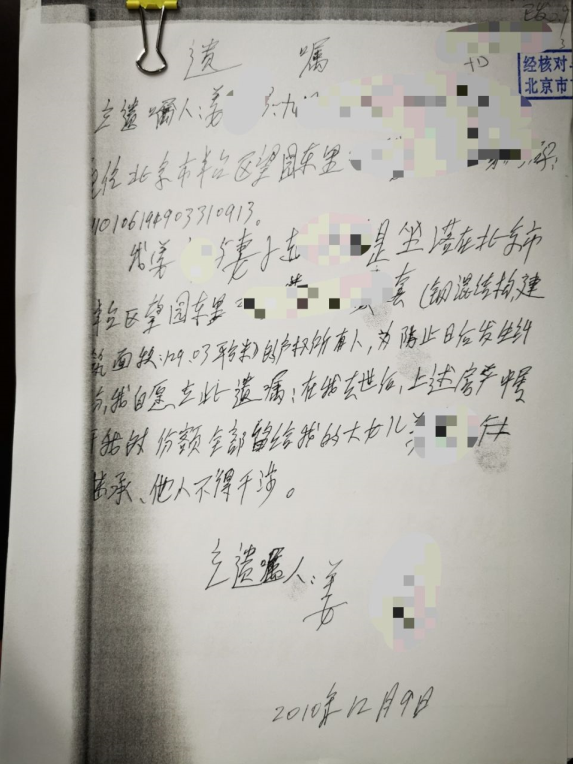 经核对
北京市
遗嘱
立遗嘱人:姜
住北京市丰台区望园东里
我姜 与妻子 是坐落在北京市
丰台区望园东里 套(钢混结构,建
筑面积:129.03平方米)的产权所有人,为防止日后发生纠
,我自愿立此遗嘱:在我去世后,上述房产中属
于我的份额全部留给我的大女儿姜
继承、他人不得干涉。
立遗嘱人:姜
2010年12月9日